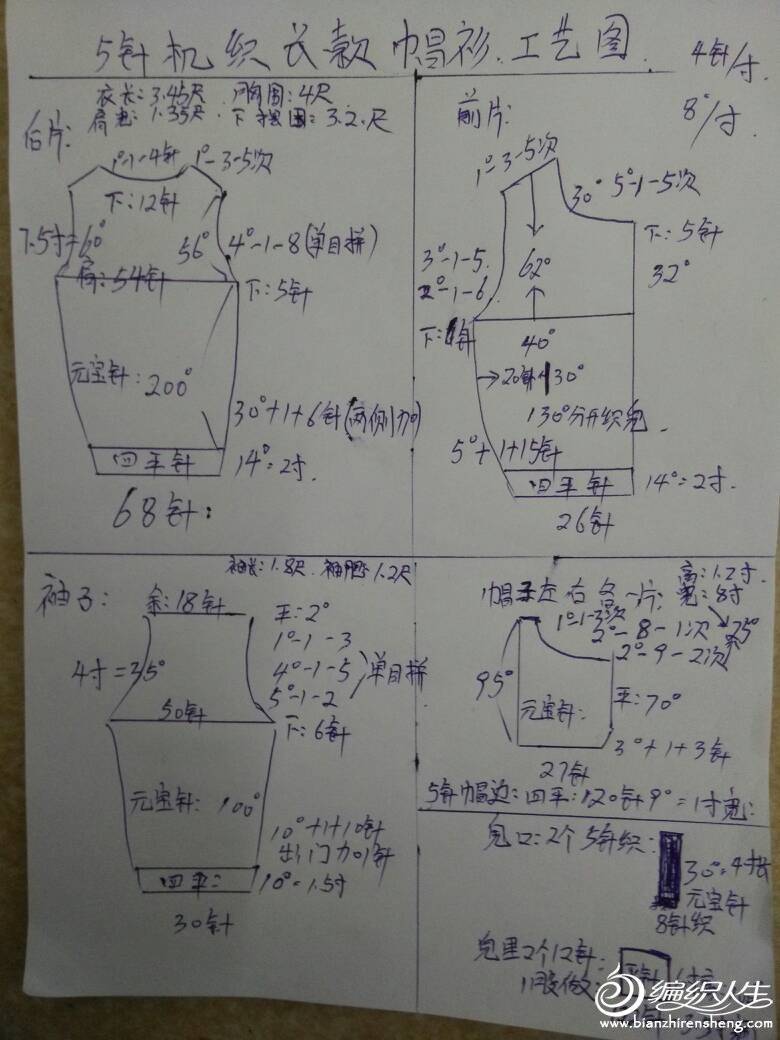 5针机织长款帽衫.工艺图.
4针/寸
8°/寸
衣长:3.45尺.胸围:4尺
肩宽:1.35尺.下摆围:3.2.尺
后片:
1°-1-4针 1°-3-5次
下:12针
7.5寸=60°
56° 4°-1-8(单目拼)
肩:54针
下:5针
元宝针:200°
30°+1+6针(两侧加)
四平针
14°=2寸.
68针:
前片:
1°-3-5次
30° 5°-1-5次
下:5针
3°-1-5.
2°-1-6.
62°
32°
下:4针
40°
→20针 130°
130°分开织兜.
5°+1+15针
四平针
14°=2寸.
26针
袖长:1.8尺.袖肥1.2尺
袖子:
余:18针
平:2°
1°-1-3
4°-1-5
5°-1-2
单目拼
4寸=35°
50针
下:6针
元宝针:100°
10°+1+10针
出门加1针
四平:
10°=1.5寸
30针
高:1.2寸
宽:8寸
帽子左右各一片:
1°-1-3次
2°-8-1次
25°
2°-9-2次
95°
元宝针:
平:70°
3°+1+3针
27针
5针帽边:四平:120针9°=1寸宽:
兜口:2个5针织:
30°=4寸长
元宝针
8针织
兜里2个12针:
平针
编织人生
www.bianzhirensheng.com